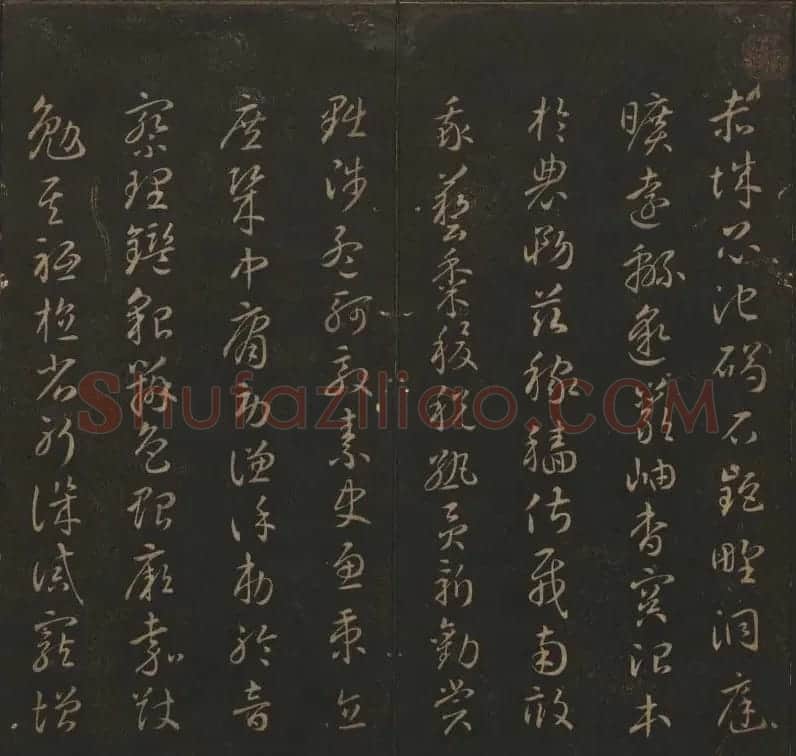 赤城昆池碣石鉅野洞庭
曠遠緜邈巖岫杳冥治本
於農務茲稼穡俶載南畝
我藝黍稷稅熟貢新勸賞
黜陟孟軻敦素史魚秉直
庶幾中庸勞謙謹敕聆音
察理鑑貌辨色貽厥嘉猷
勉其祗植省躬譏誡寵增
Shufaziliao.COM